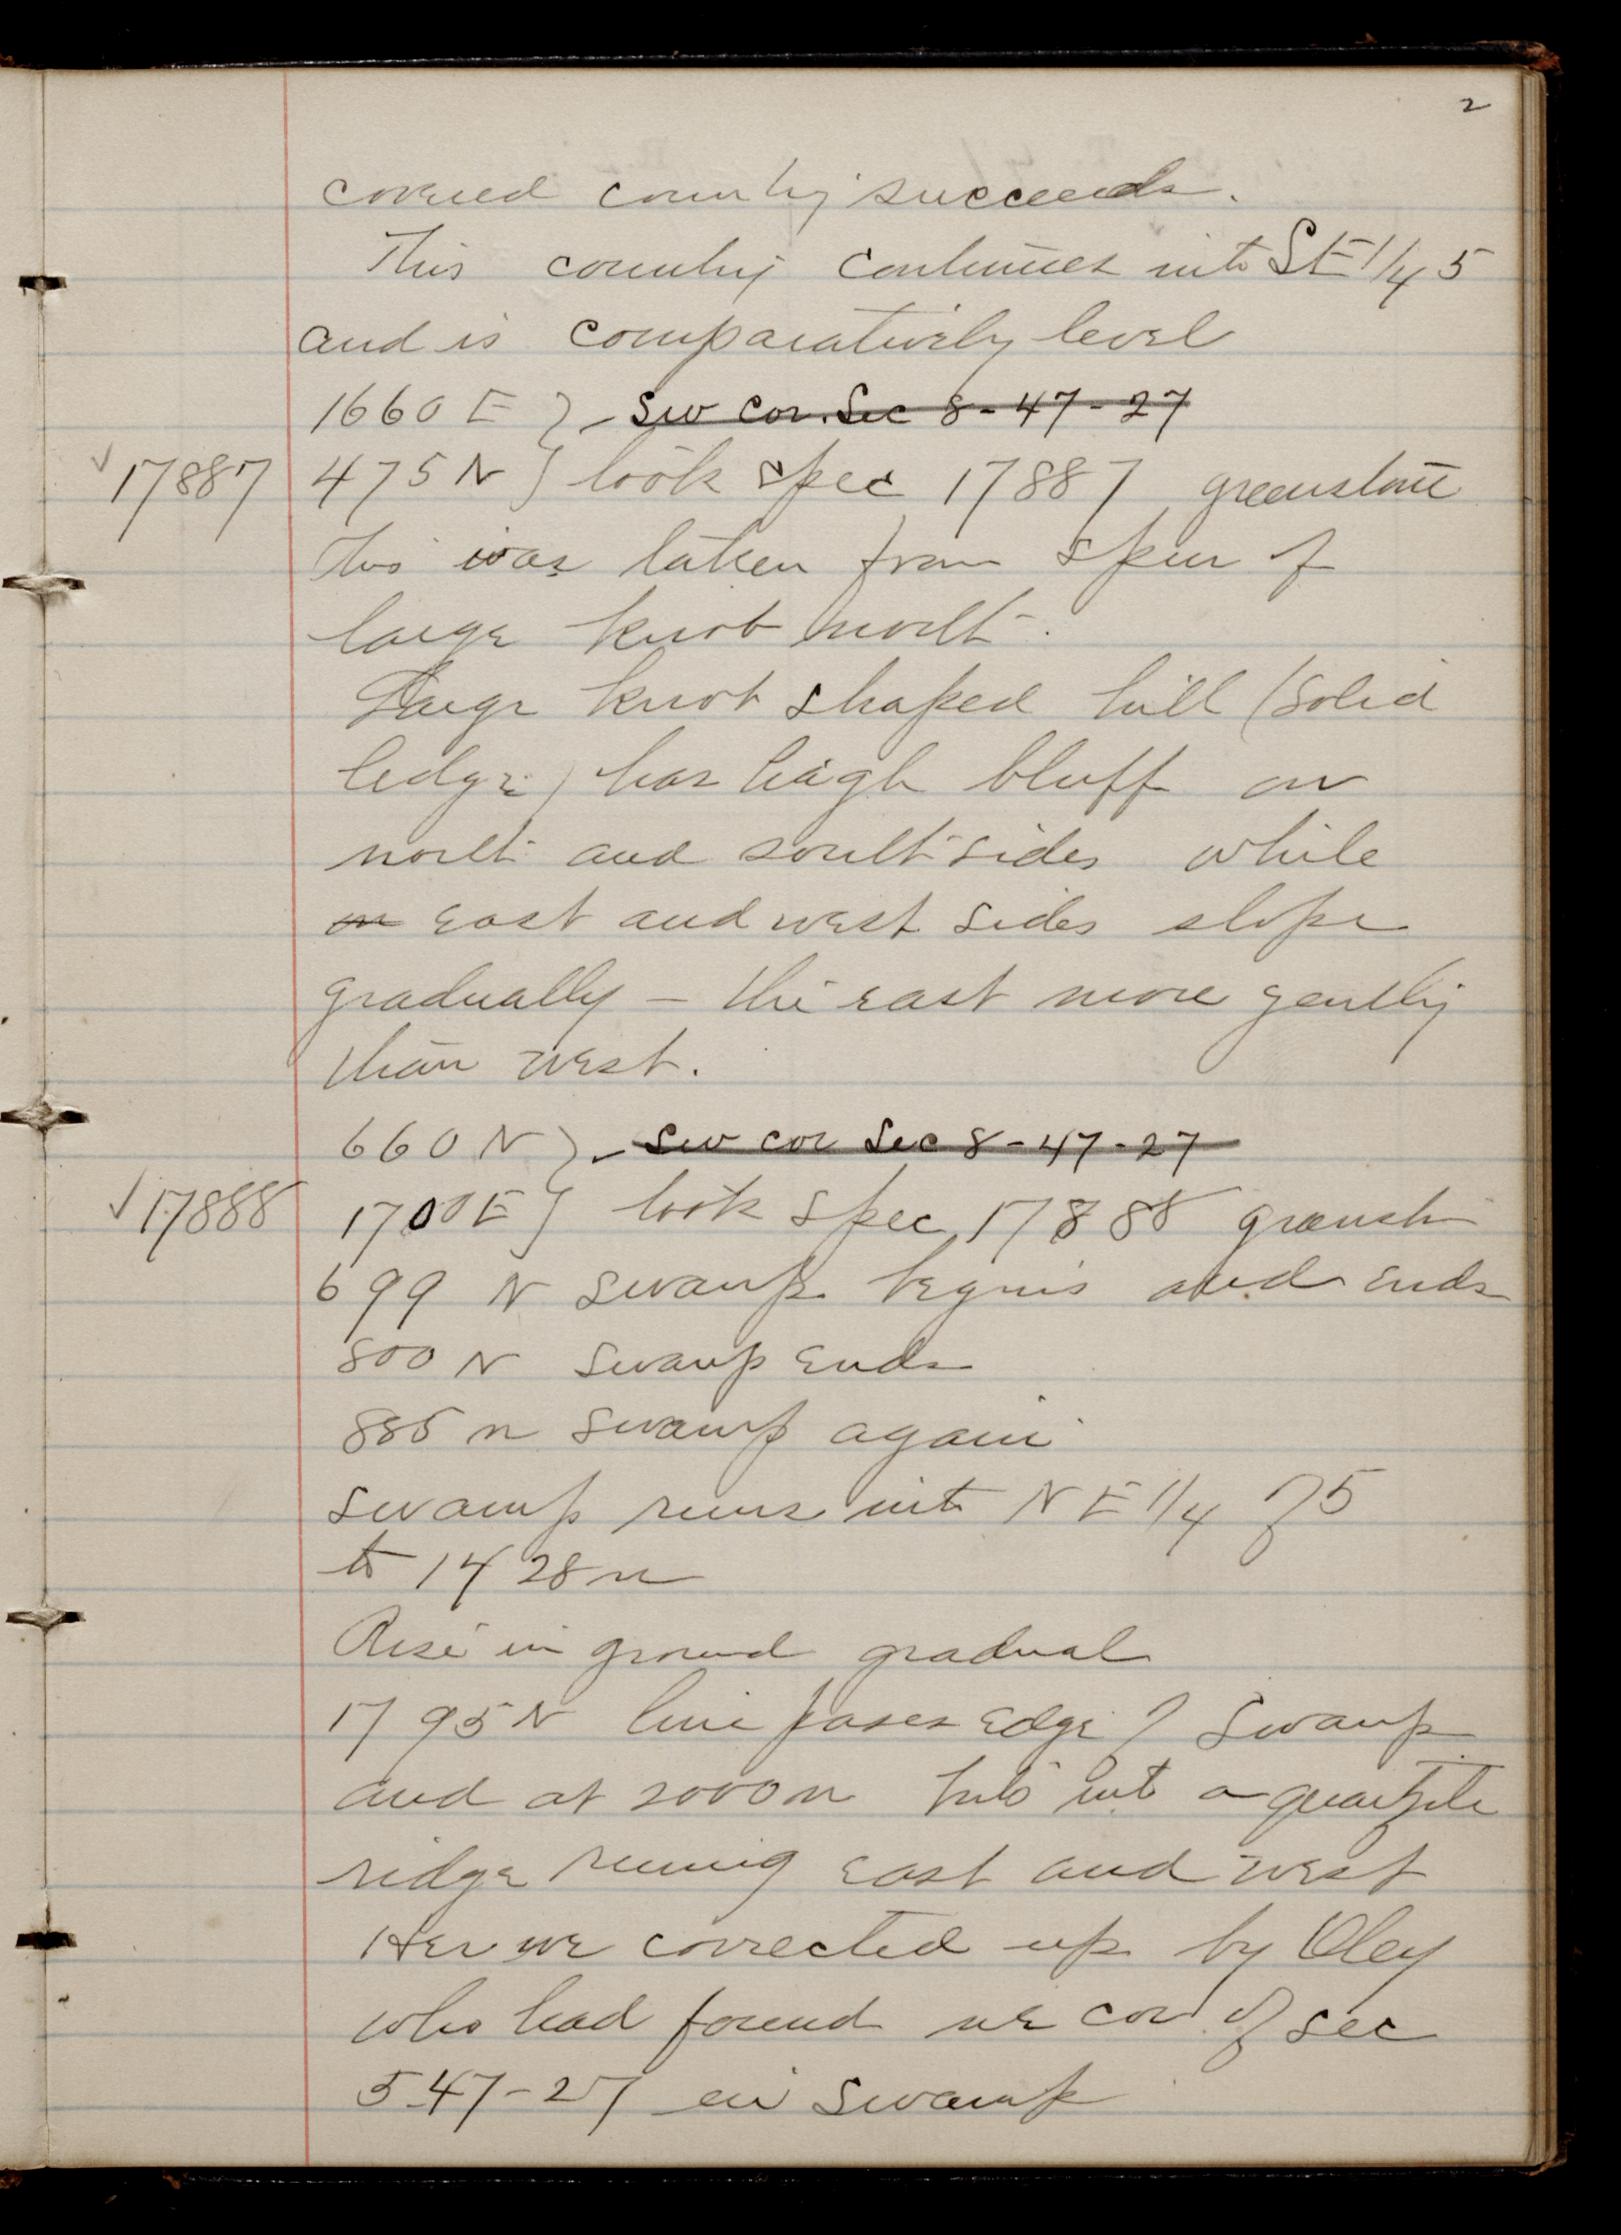 2
covered country succeeds.
This country continues into SE 1/4 5
and is comparatively level
1660 E } - SW cor. Sec 8-47-27
✓17887 475 N } took spec 17887 greenstone
This was taken from spur of
large knob north.
Large knob shaped hill (solid
ledge) has high bluff on
north and south sides while
on east and west sides slope
gradually – the east more gently
than west.
660 N } - SW cor Sec 8-47-27
✓17888 1700 E } took spec 17888
699 N swamp begins and ends
800 N swamp ends
885 n swamp again
swamp runs into NE 1/4 of 5
to 1428 n
Rise in ground gradual
1795 N line passes edge of swamp
and at 2000 n hits into a quartzite
ridge running east and west
Her we corrected up by Oley
who had found ne cor of sec
5-47-27 in swamp